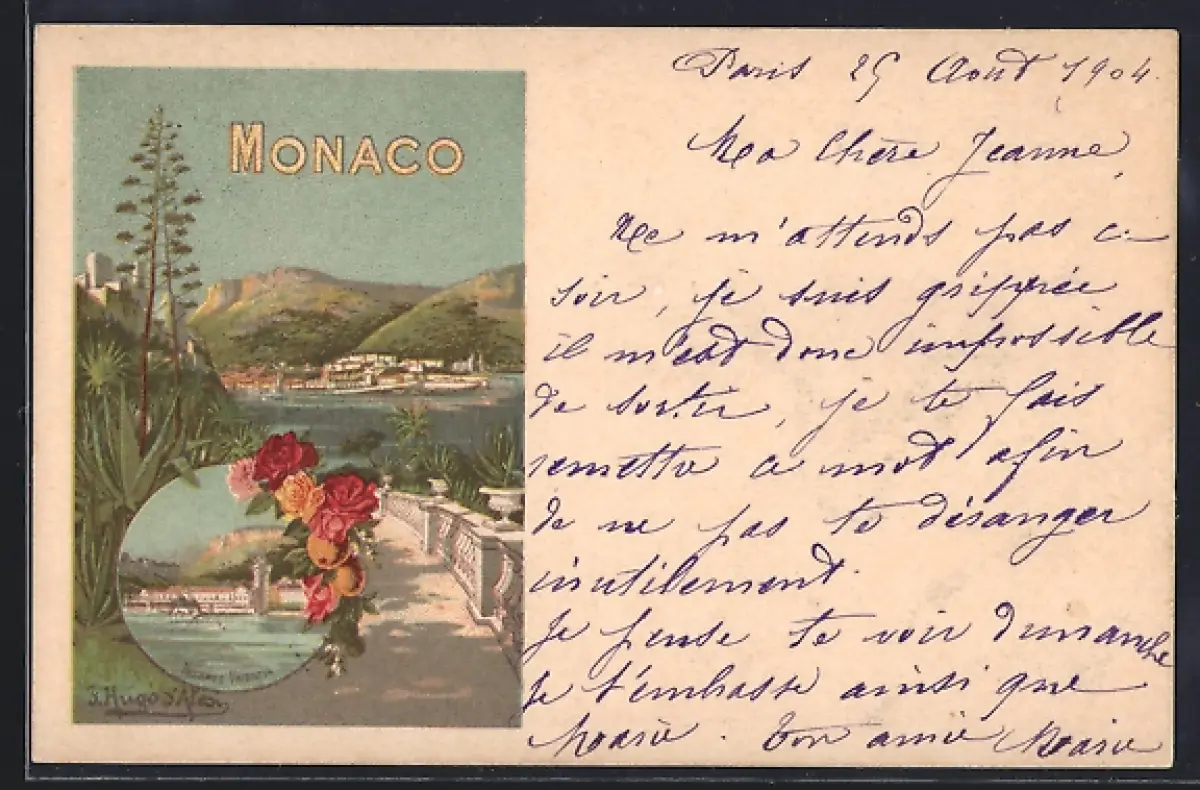 MONACO
F. Hugo d'Alesi
Paris 25 Août 1904.
Ma Chère Jeanne,
Ne m'attends pas ce
soir, je suis grippée
il m'est donc impossible
de sortir, je te fais
remettre ce mot afin
de ne pas te déranger
inutilement.
Je pense te voir dimanche
Je t'embrasse ainsi que
Marie. Ton amie Marie